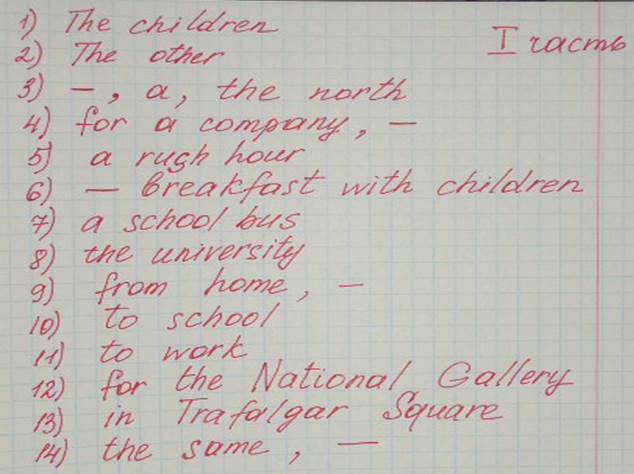 1) The children
I часть
2) The other
3) –, a, the north
4) for a company, –
5) a rugh hour
6) – breakfast with children
7) a school bus
8) the university
9) from home, –
10) to school
11) to work
12) for the National Gallery
13) in Trafalgar Square
14) the same, –